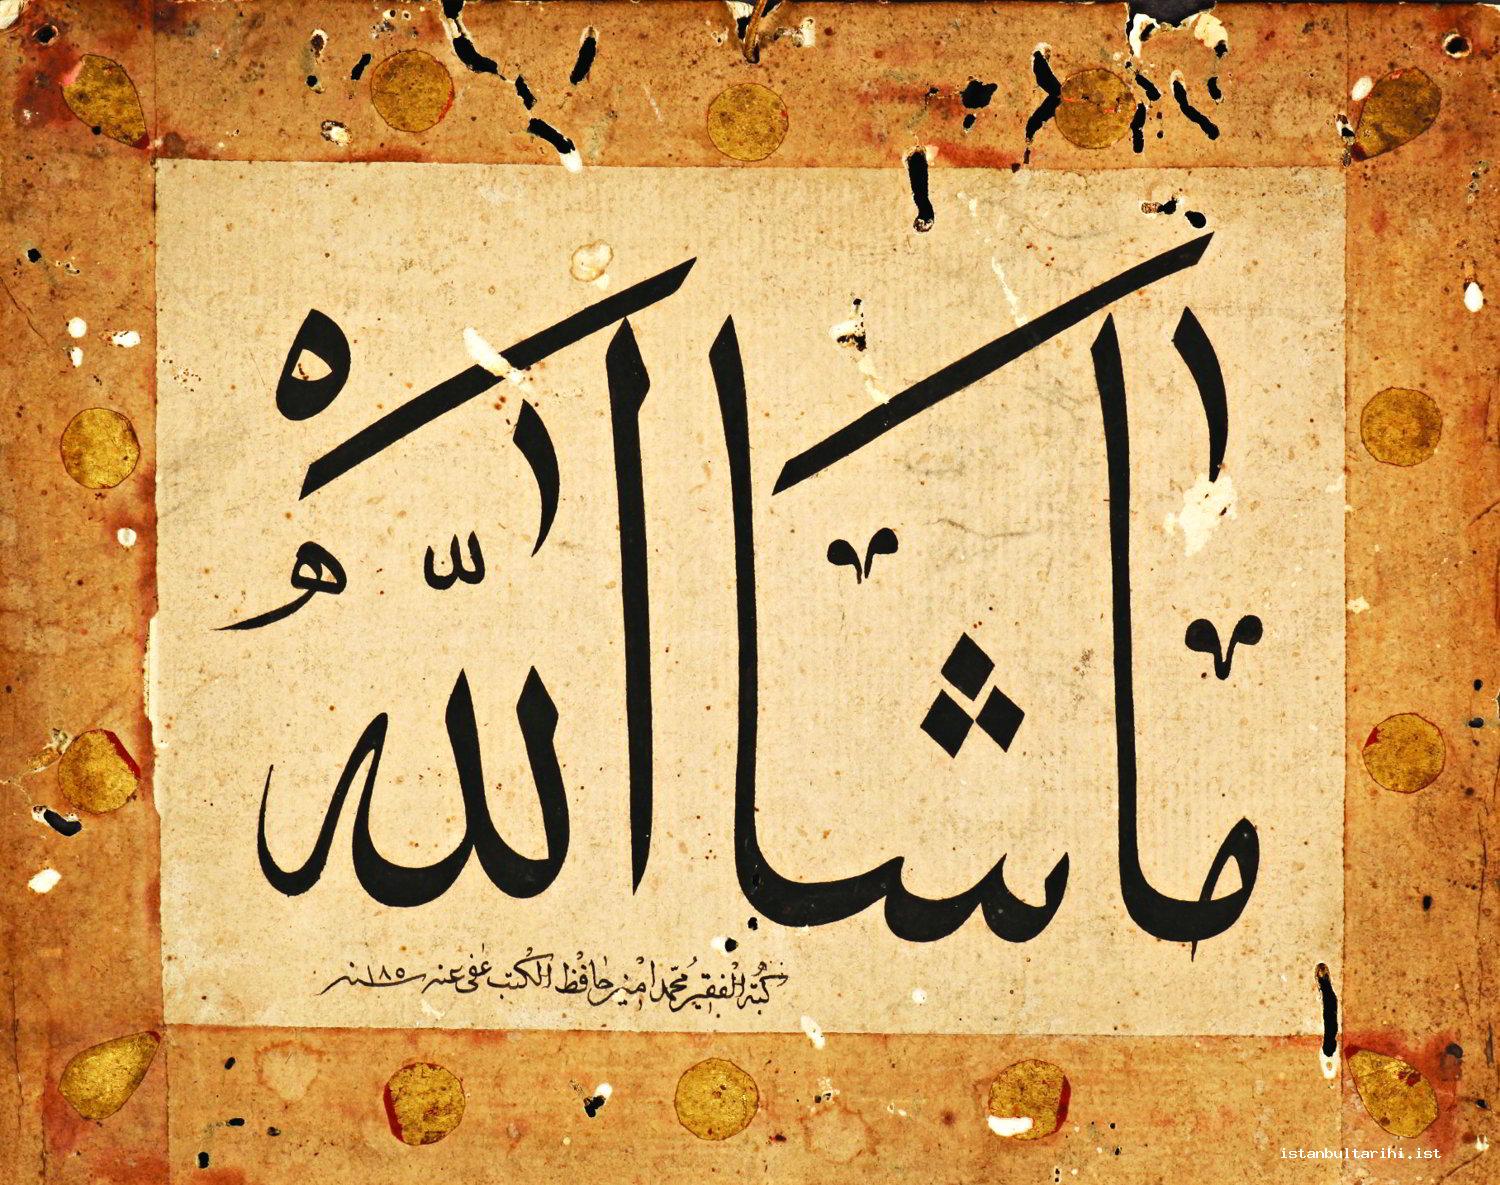 ما شا الله
كتبه الفقير محمد امين حافظ الكتب عفى عنه سنه ١١٨٥
istanbultarihi.ist